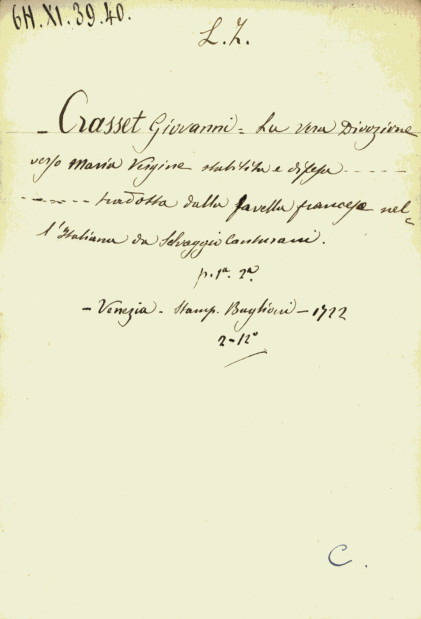 6H.XI.39.40.
L.Z.
- Crasset Giovanni = La vera Divozione
verso Maria Vergine stabilita e difesa - - - -
- - - - - tradotta dalla favella francese nel=
l'Italiana da Selvaggio Canturani.
p. 1ª. 2ª.
- Venezia - Stamp. Baglioni - 1722
2 - 12°
C.